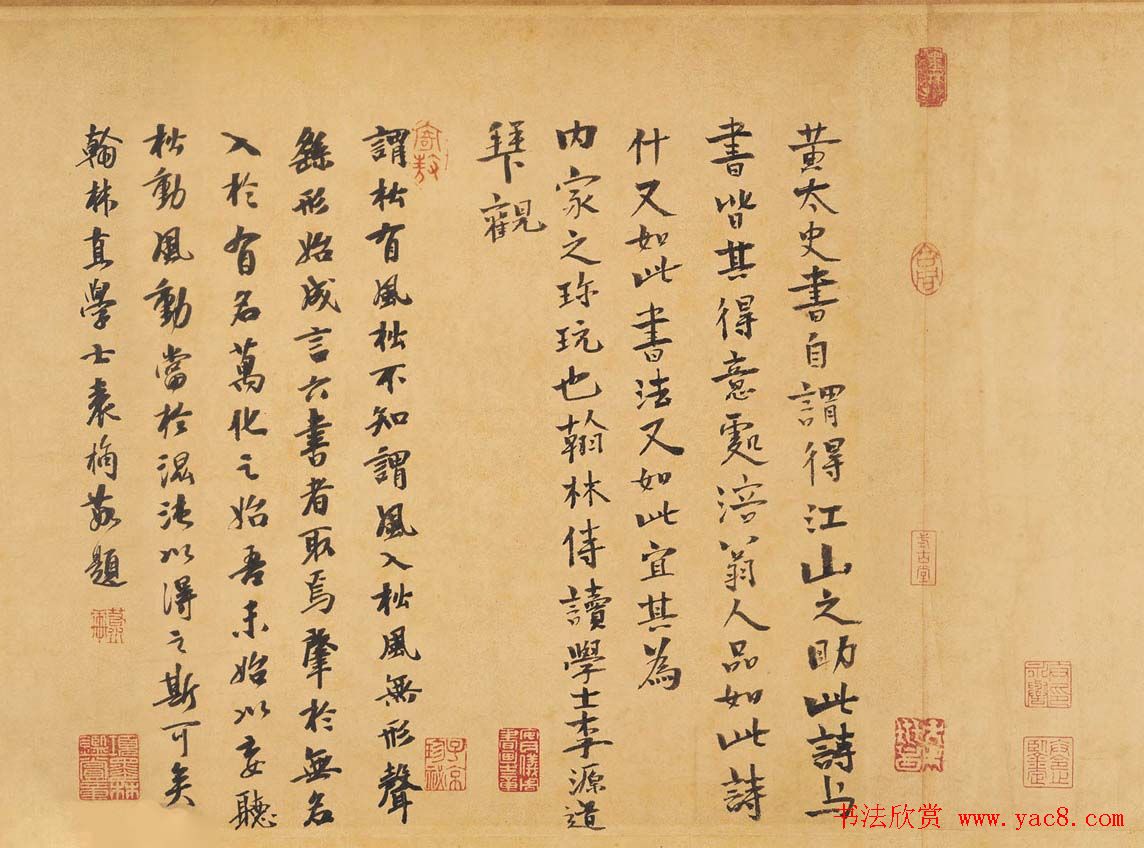 黄太史書自謂得江山之助此詩与
書皆其得意處涪翁人品如此詩
什又如此書法又如此宜其為
内家之珎玩也翰林侍讀學士李源道
拜觀
謂松有風松不知謂風入松風無形聲
繇形始成言六書者取焉肇於無名
入於有名萬化之始吾未始以妄聽
松動風動當於混沌以得之斯可矣
翰林直學士袁桷敬題
式古堂
子京珍秘
安儀周書畫之章
书法欣赏 www.yac8.com